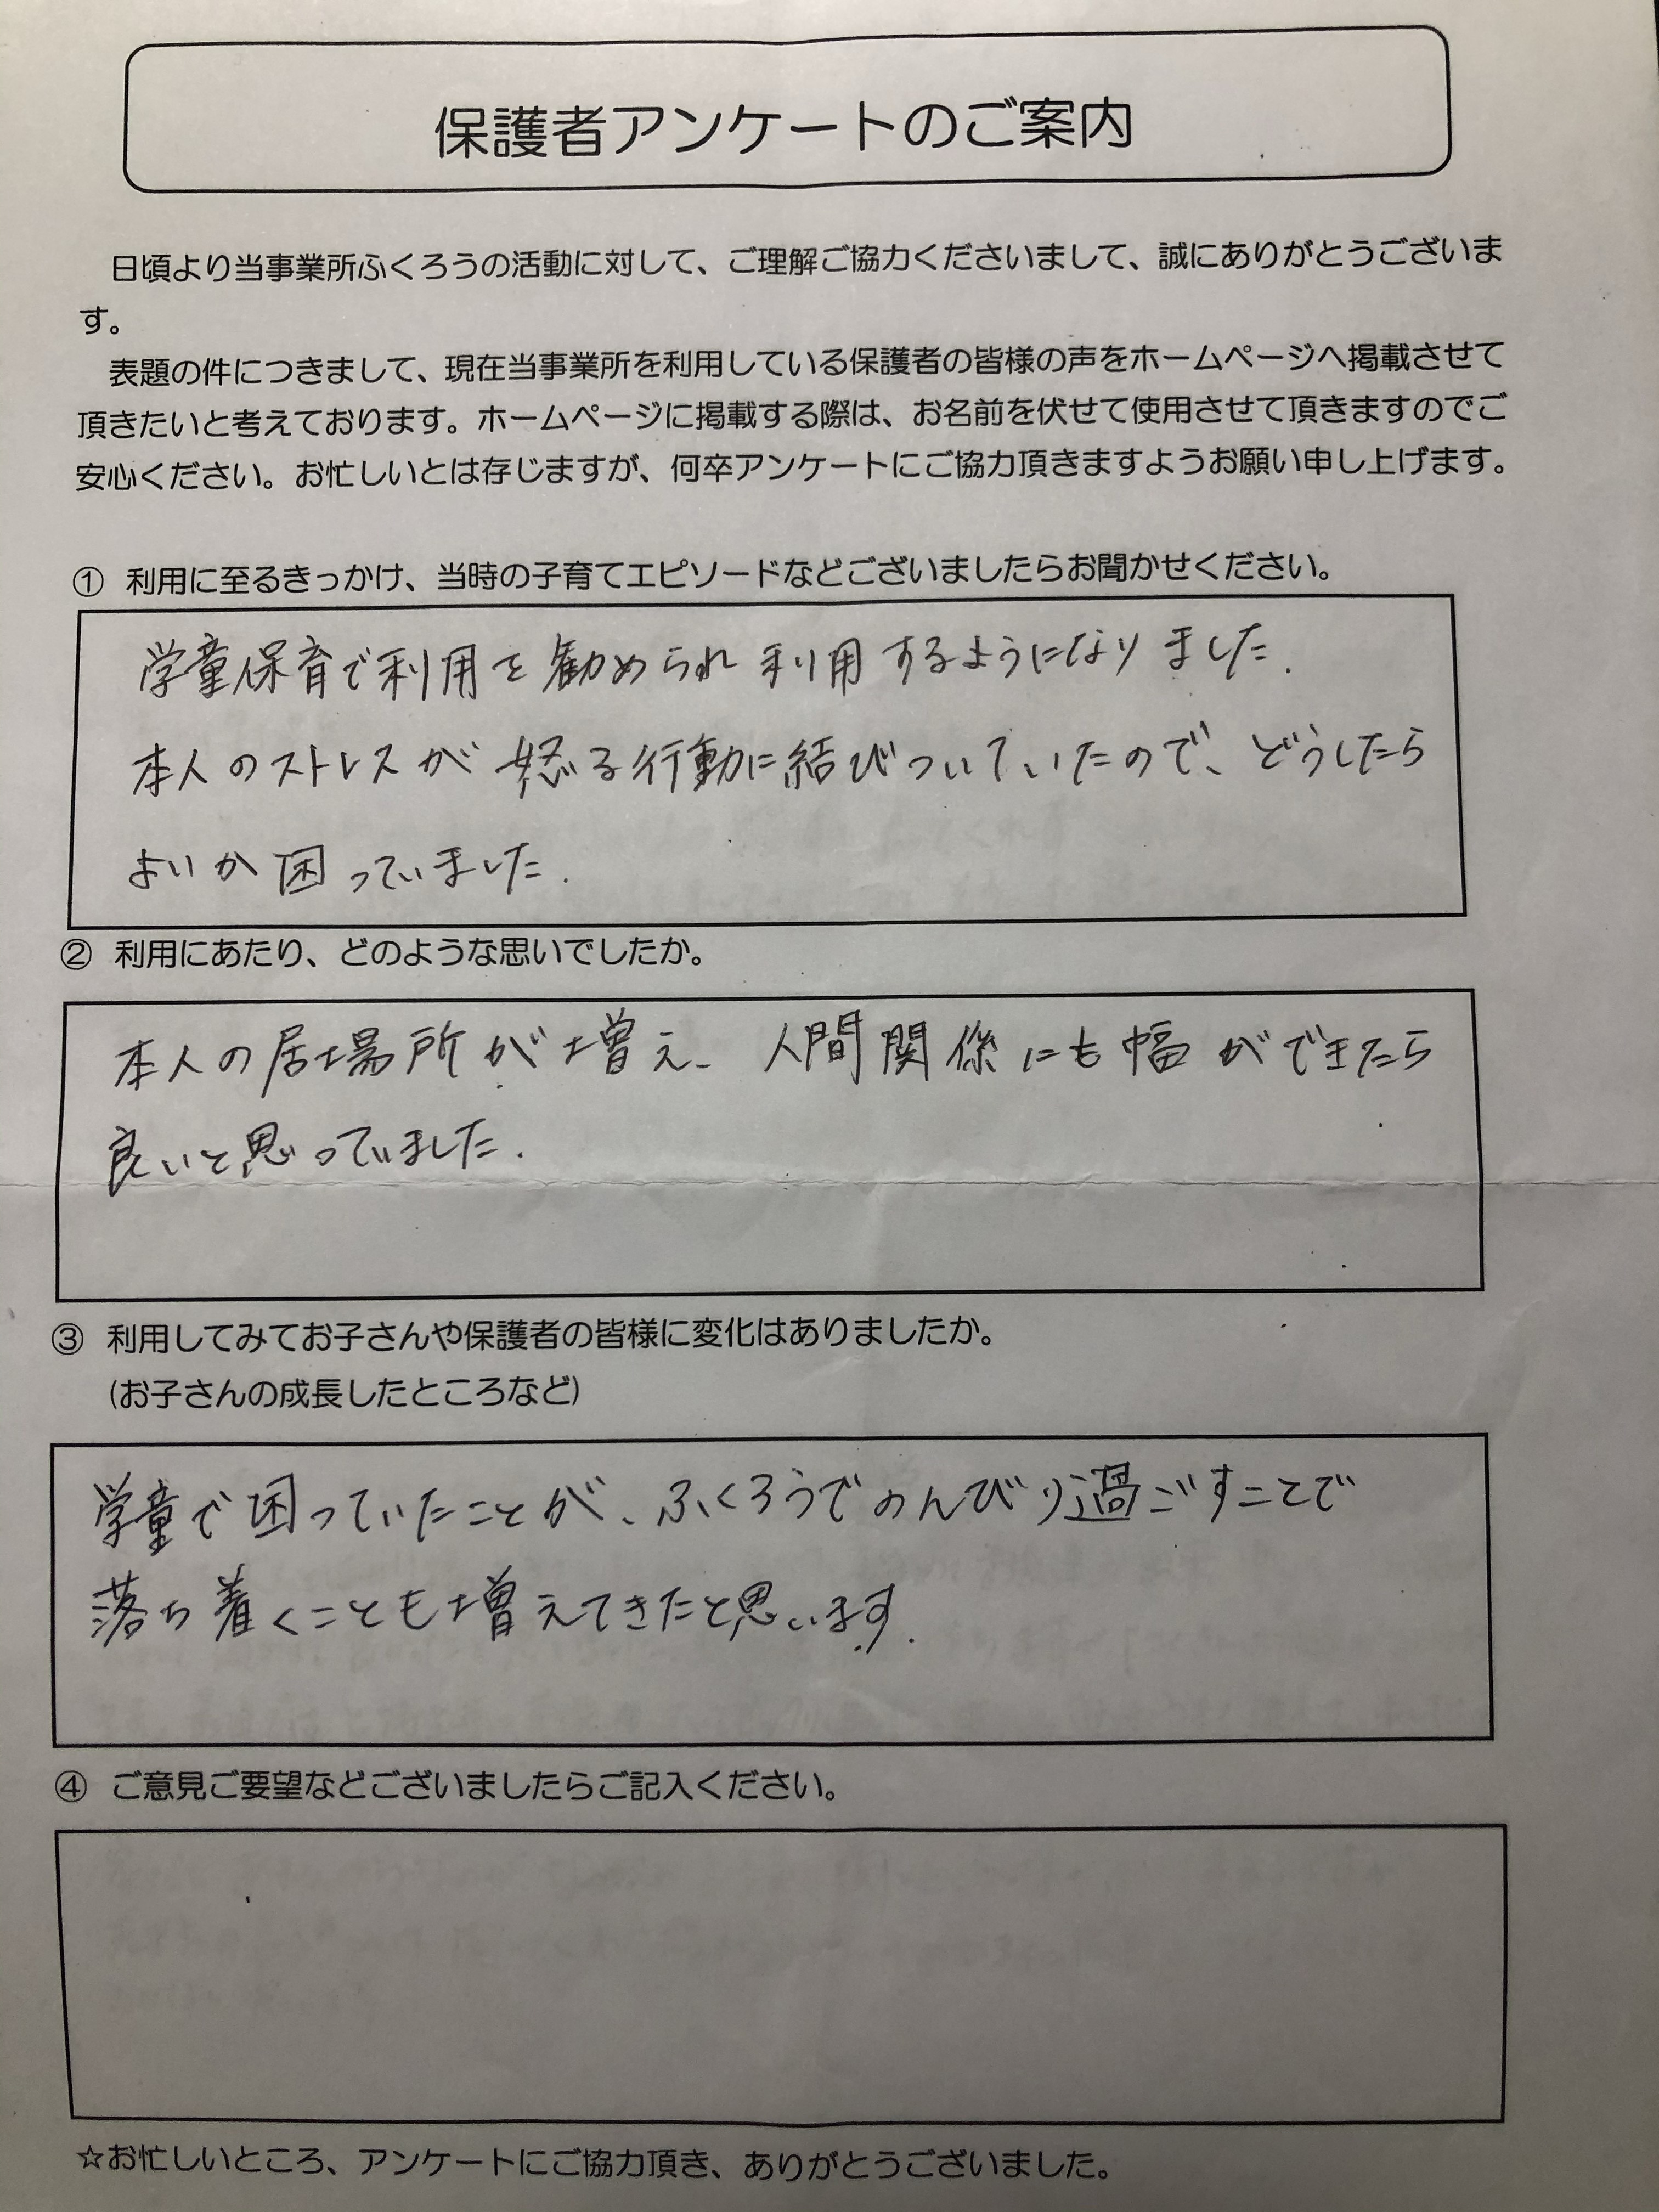 保護者アンケートのご案内
日頃より当事業所ふくろうの活動に対して、ご理解ご協力くださいまして、誠にありがとうございま
す。
表題の件につきまして、現在当事業所を利用している保護者の皆様の声をホームページへ掲載させて
頂きたいと考えております。ホームページに掲載する際は、お名前を伏せて使用させて頂きますのでご
安心ください。お忙しいとは存じますが、何卒アンケートにご協力頂きますようお願い申し上げます。
① 利用に至るきっかけ、当時の子育てエピソードなどございましたらお聞かせください。
学童保育で利用を勧められ利用するようになりました.
本人のストレスが怒る行動に結びついていたので、どうしたら
よいか困っていました.
② 利用にあたり、どのような思いでしたか。
本人の居場所が増え、人間関係にも幅ができたら
良いと思っていました.
③ 利用してみてお子さんや保護者の皆様に変化はありましたか。
(お子さんの成長したところなど)
学童で困っていたことが、ふくろうでのんびり過ごすことで
落ち着くことも増えてきたと思います.
④ ご意見ご要望などございましたらご記入ください。
☆お忙しいところ、アンケートにご協力頂き、ありがとうございました。